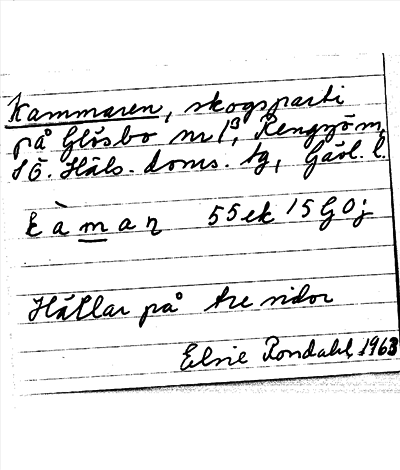 Kammaren, skogsparti
på Glösbo nr 1³, Rengsjö sn,
SÖ. Häls. doms. tg, Gävl. l.
kàman 55ek 15G0j
Hällar på tre sidor
Elsie Rondahl 1963